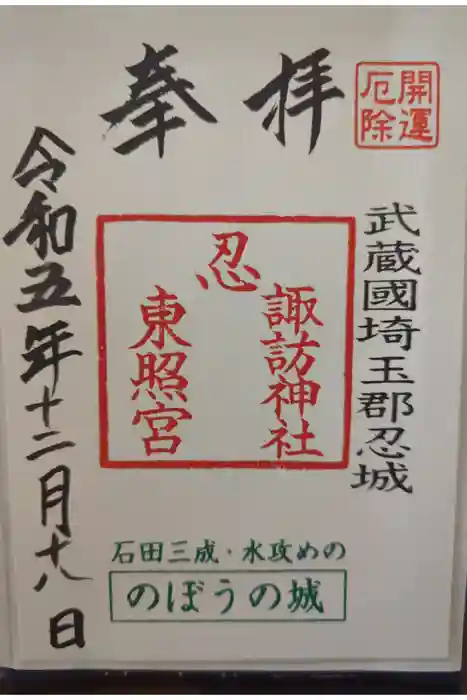 開運
厄除
奉拝
武蔵國埼玉郡忍城
忍
諏訪神社
東照宮
石田三成・水攻めの
のぼうの城
令和五年十二月十八日